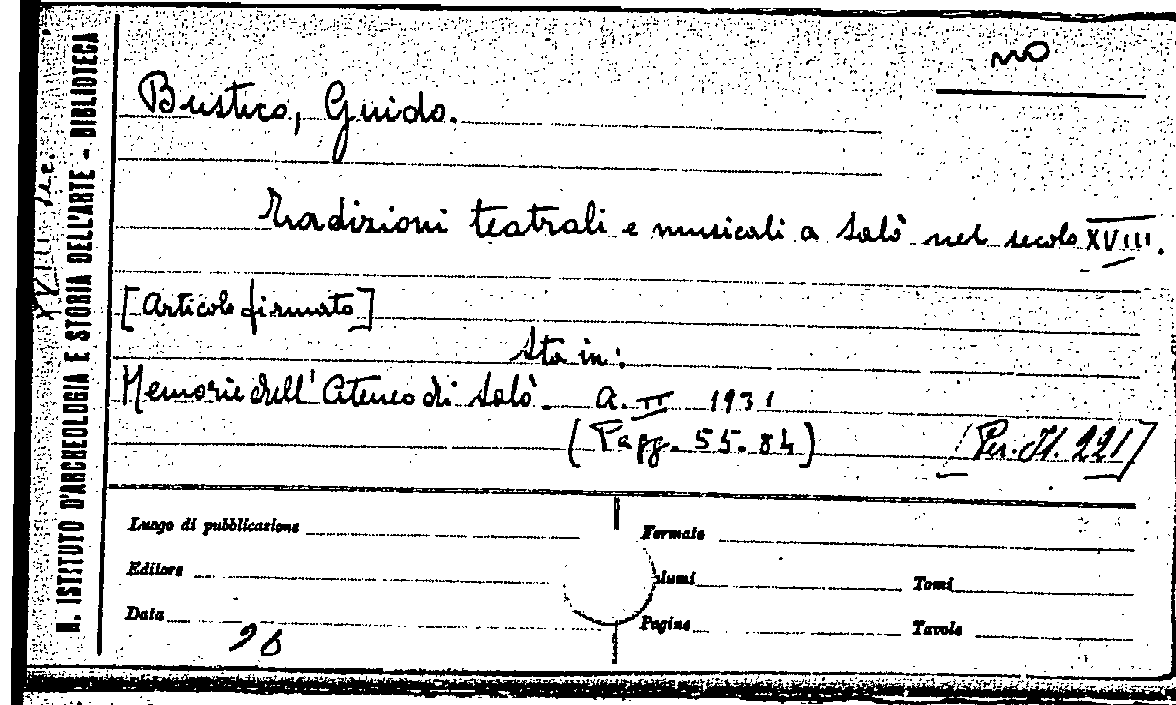 mo
Bustico, Guido.
Tradizioni teatrali e musicali a Salò nel secolo XVIII.
[Articolo firmato]
Sta in:
Memorie dell'Ateneo di Salò. A. II 1931
(Pagg. 55-84) [Per. It. 221]
Luogo di pubblicazione
Formato
Editore
lumi
Tomi
Data
Pagine
Tavole
96
R. ISTITUTO D'ARCHEOLOGIA E STORIA DELL'ARTE - BIBLIOTECA
XVIII sec.